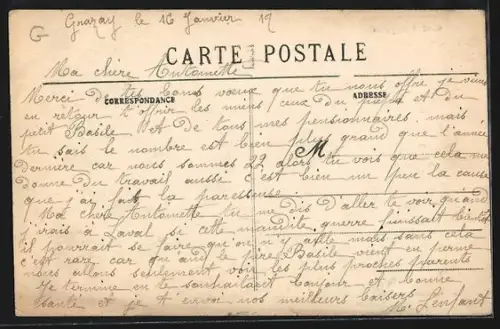 G Grazay le 16 Janvier 19
CARTE POSTALE
Ma chère Antoinette
Merci de tes bons vœux que tu nous offre je viens
CORRESPONDANCE
ADRESSE
en retour t'offrir les miens ceux du et du
petit Basile et de tous mes pensionnaires mais
tu sais le nombre est bien plus grand que l'année
M
dernière car nous sommes 22 alors tu vois que cela me
donne du travail aussi c'est bien un peu la cause
que j'ai fait la paresseuse
Ma chère Antoinette tu me dis d'aller te voir quand
j'irais à Laval si cette maudite guerre finissait bientôt
il pourrait se faire qu'on y aille mais sans cela
c'est rare car quand le père Basile vient en perme
nous allons seulement voir les plus proches parents
Je termine en te souhaitant bonjour et bonne
santé et je t'envoi nos meilleurs baisers
M. Lenfant